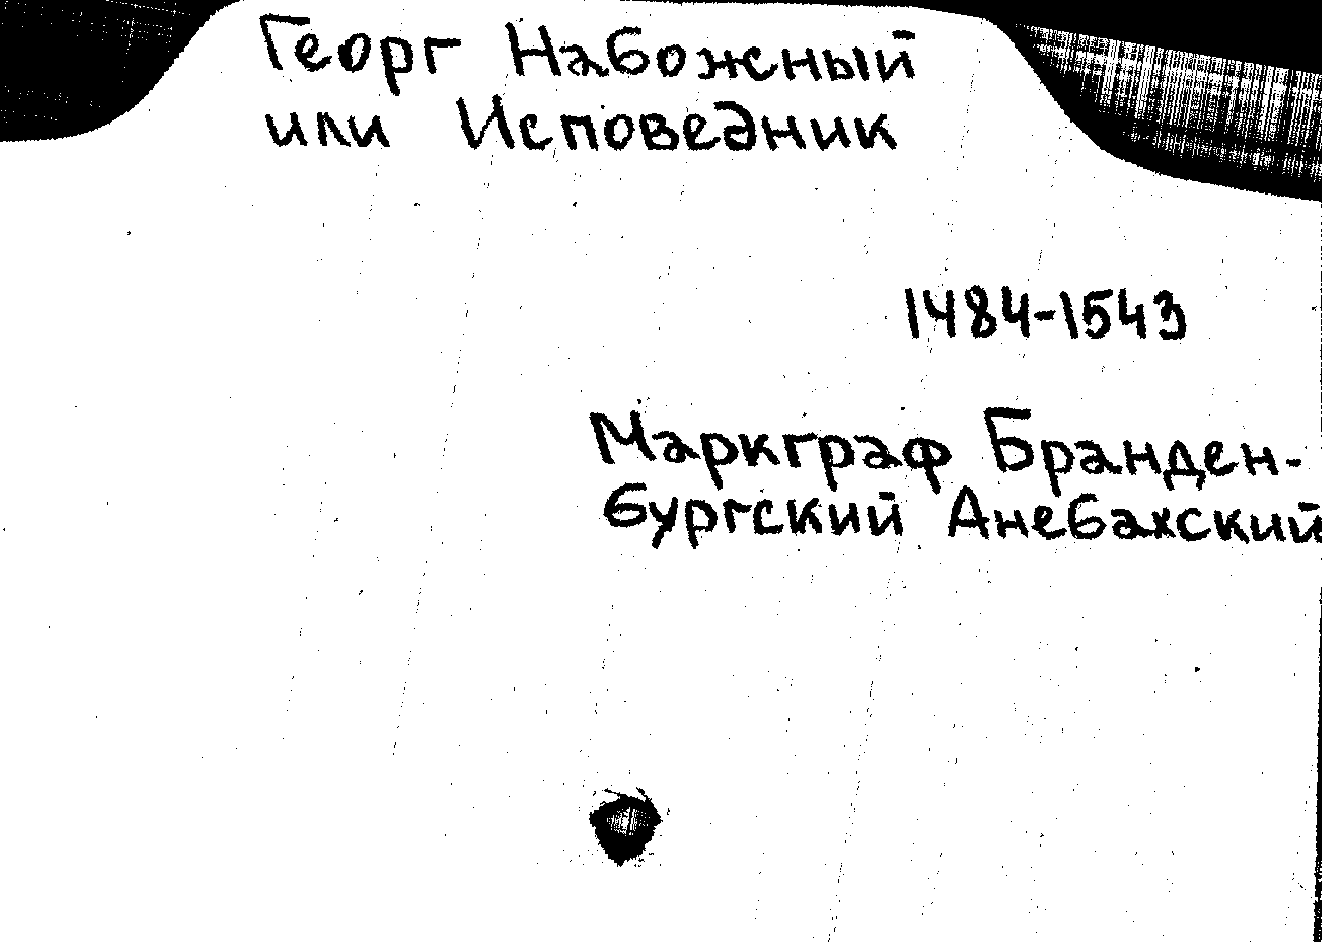 Георг Набожный
или Исповедник
1484-1543
Маркграф Бранден-
бургский Анебахский